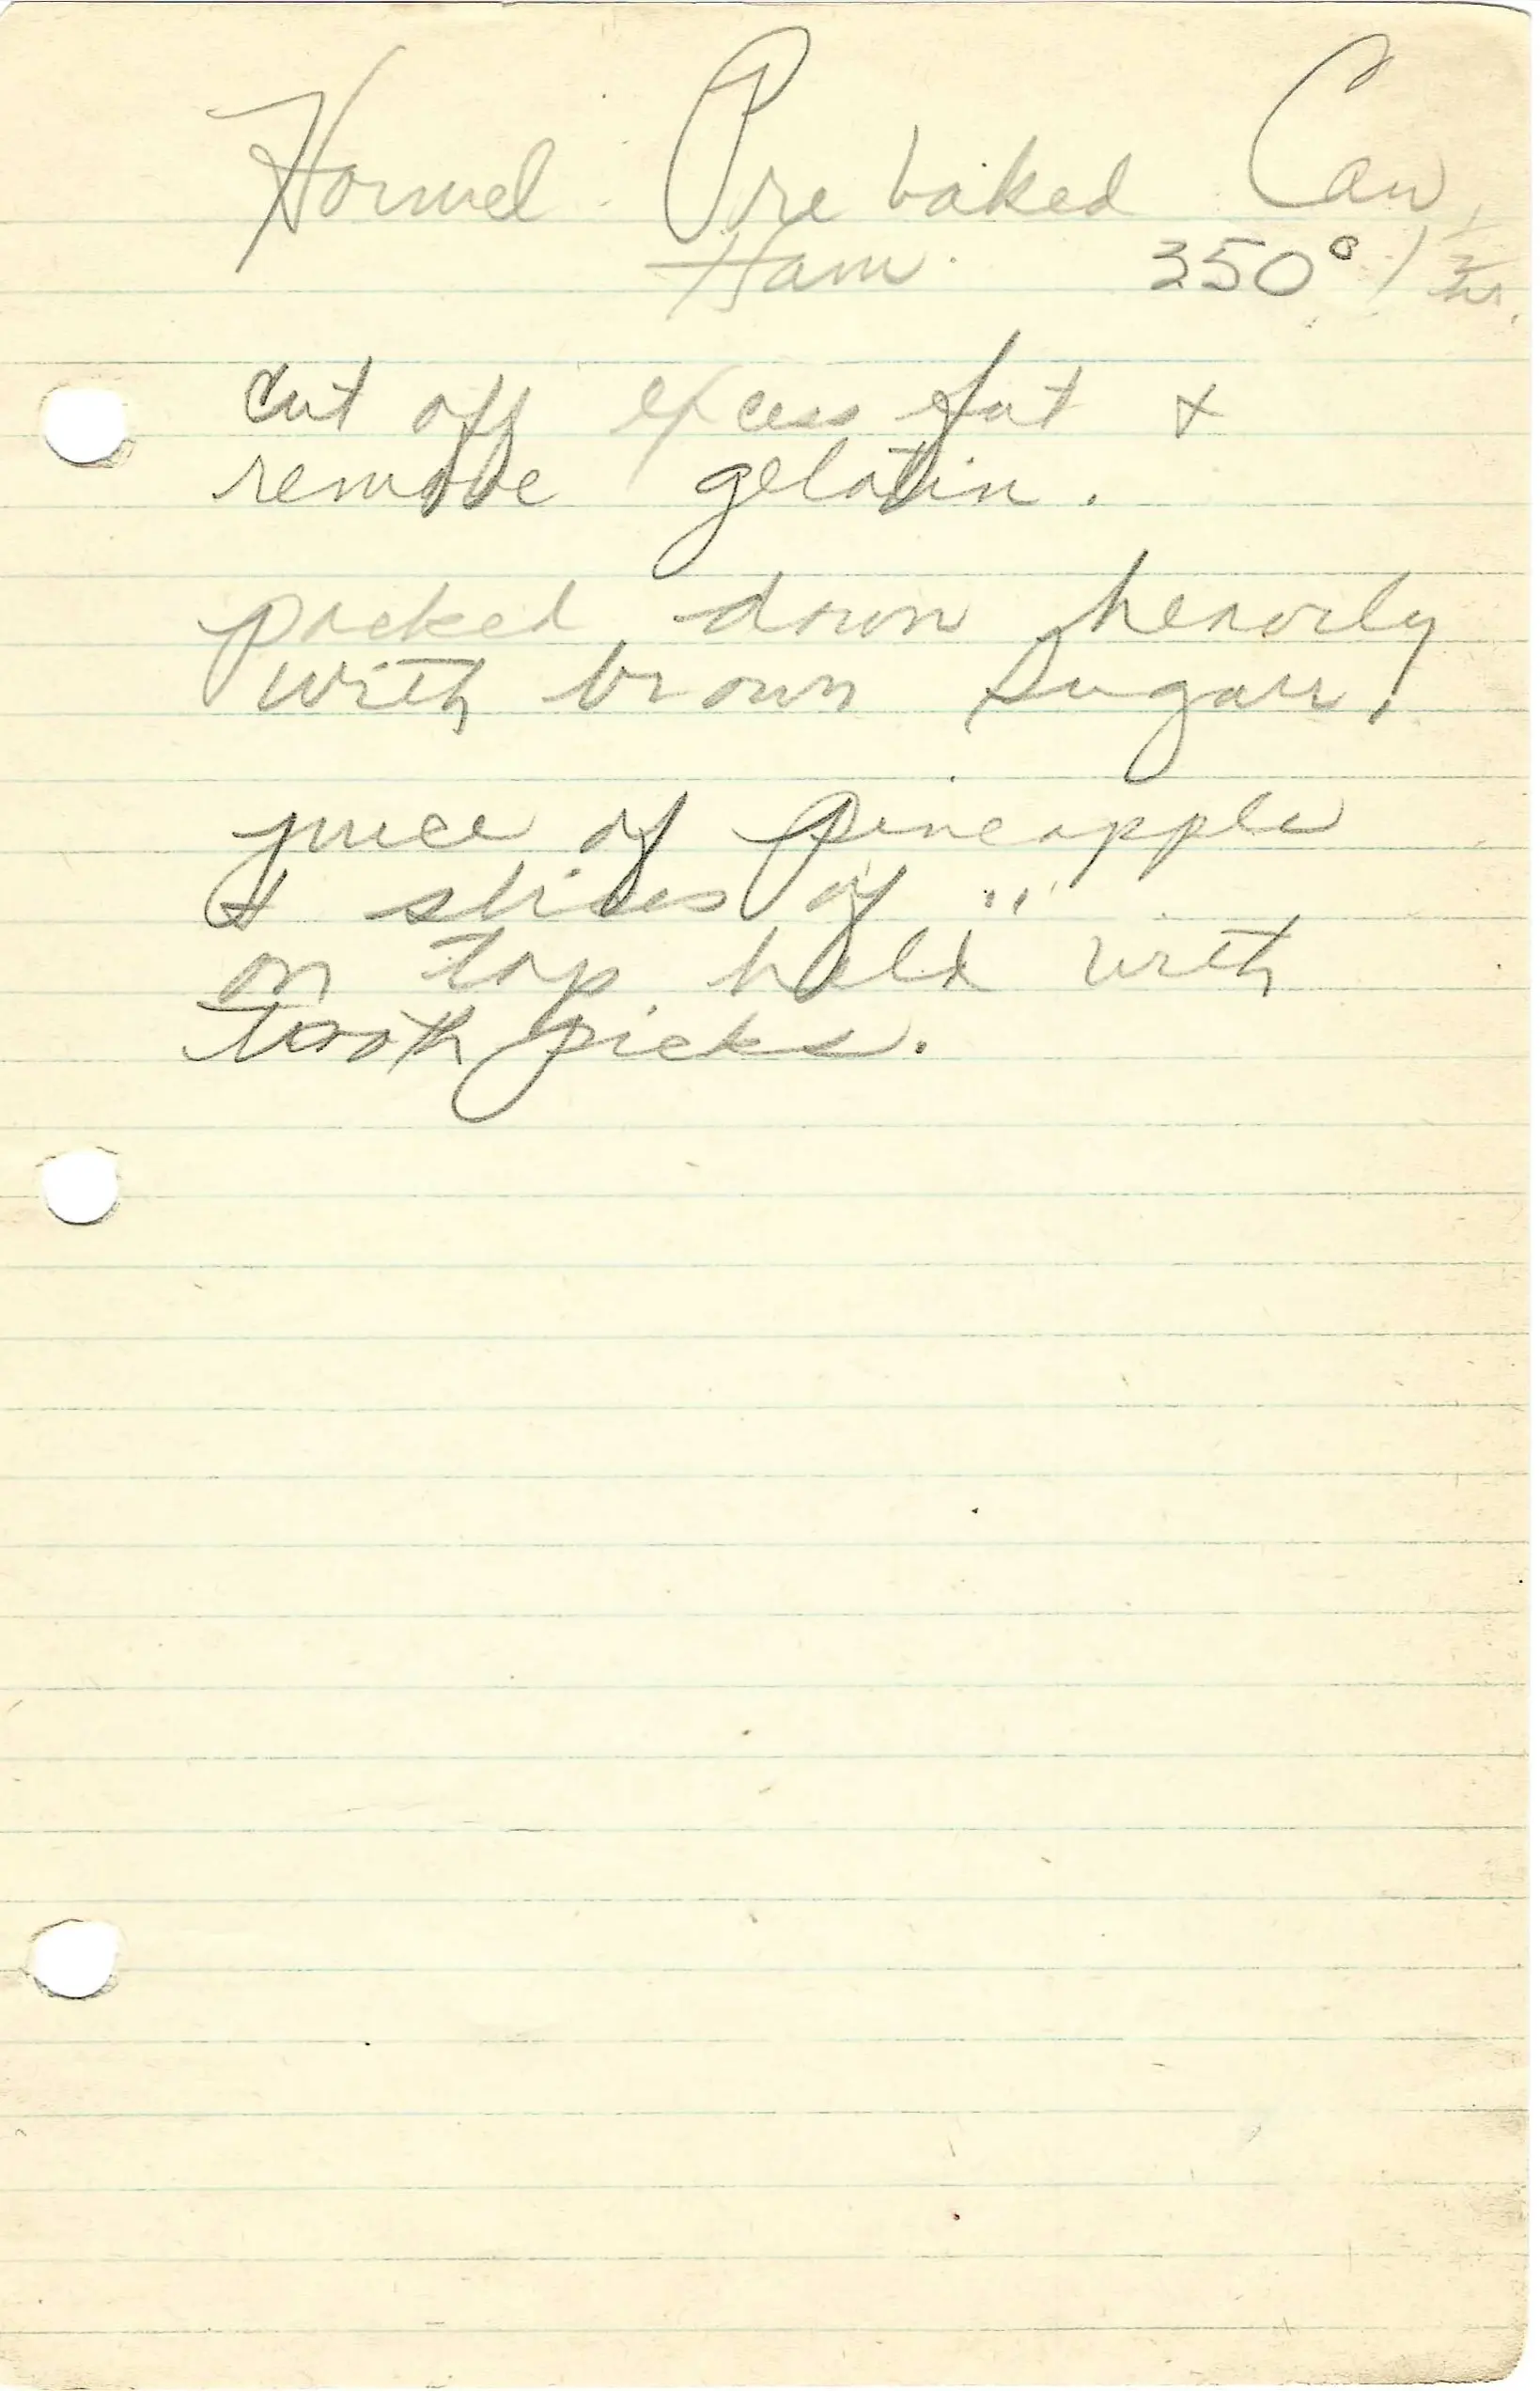 Hormel Pre baked Can
Ham. 350° 1 1/2 hr.
Cut off excess fat &
remove gelatin.
packed down heavily
with brown sugar.
juice of pineapple
& slices of "
on top. hold with
tooth picks.